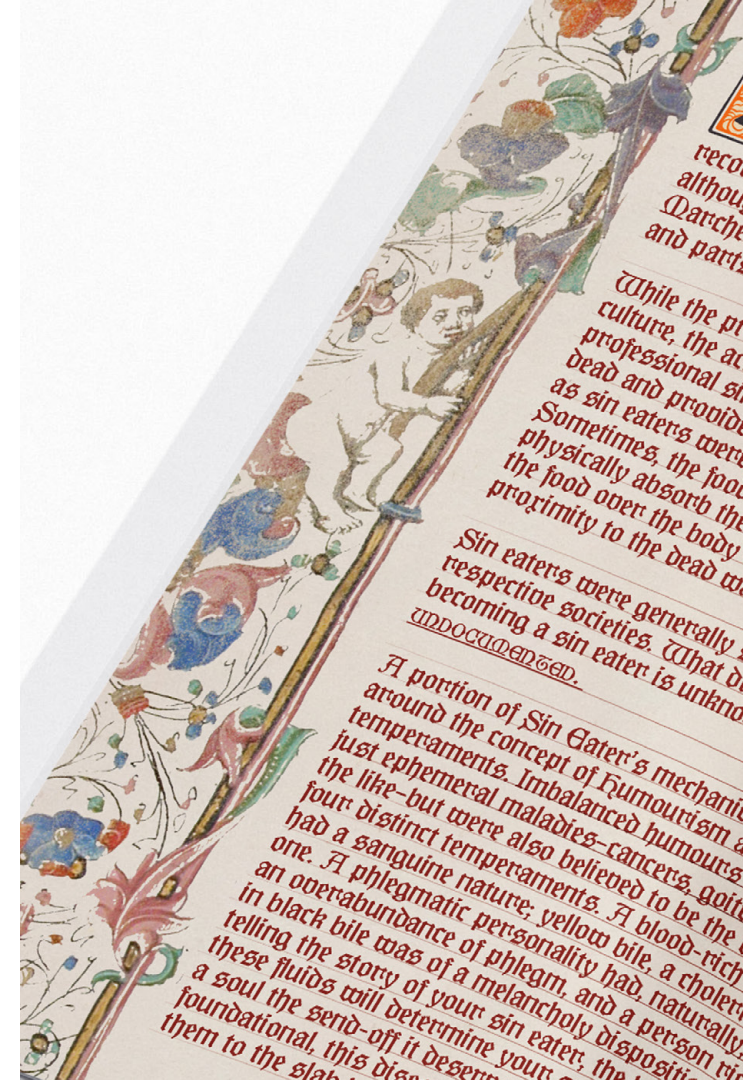 reco
althou
Marche
and parts
While the pr
culture, the ac
professional si
dead and provide
as sin eaters were
Sometimes, the food
physically absorb the
the food over the body
proximity to the dead w
Sin eaters were generally
respective societies. What d
becoming a sin eater is unkno
UNDOCUMENTED.
A portion of Sin Eater's mechanic
around the concept of Humourism a
temperaments. Imbalanced humours
just ephemeral maladies–cancers, goite
the like–but were also believed to be the
four distinct temperaments. A blood-rich
had a sanguine nature; yellow bile, a choleri
one. A phlegmatic personality had, naturally,
an overabundance of phlegm, and a person ric
in black bile was of a melancholy dispositi
telling the story of your sin eater, the
these fluids will determine your
a soul the send-off it deserv
foundational, this dise
them to the slab